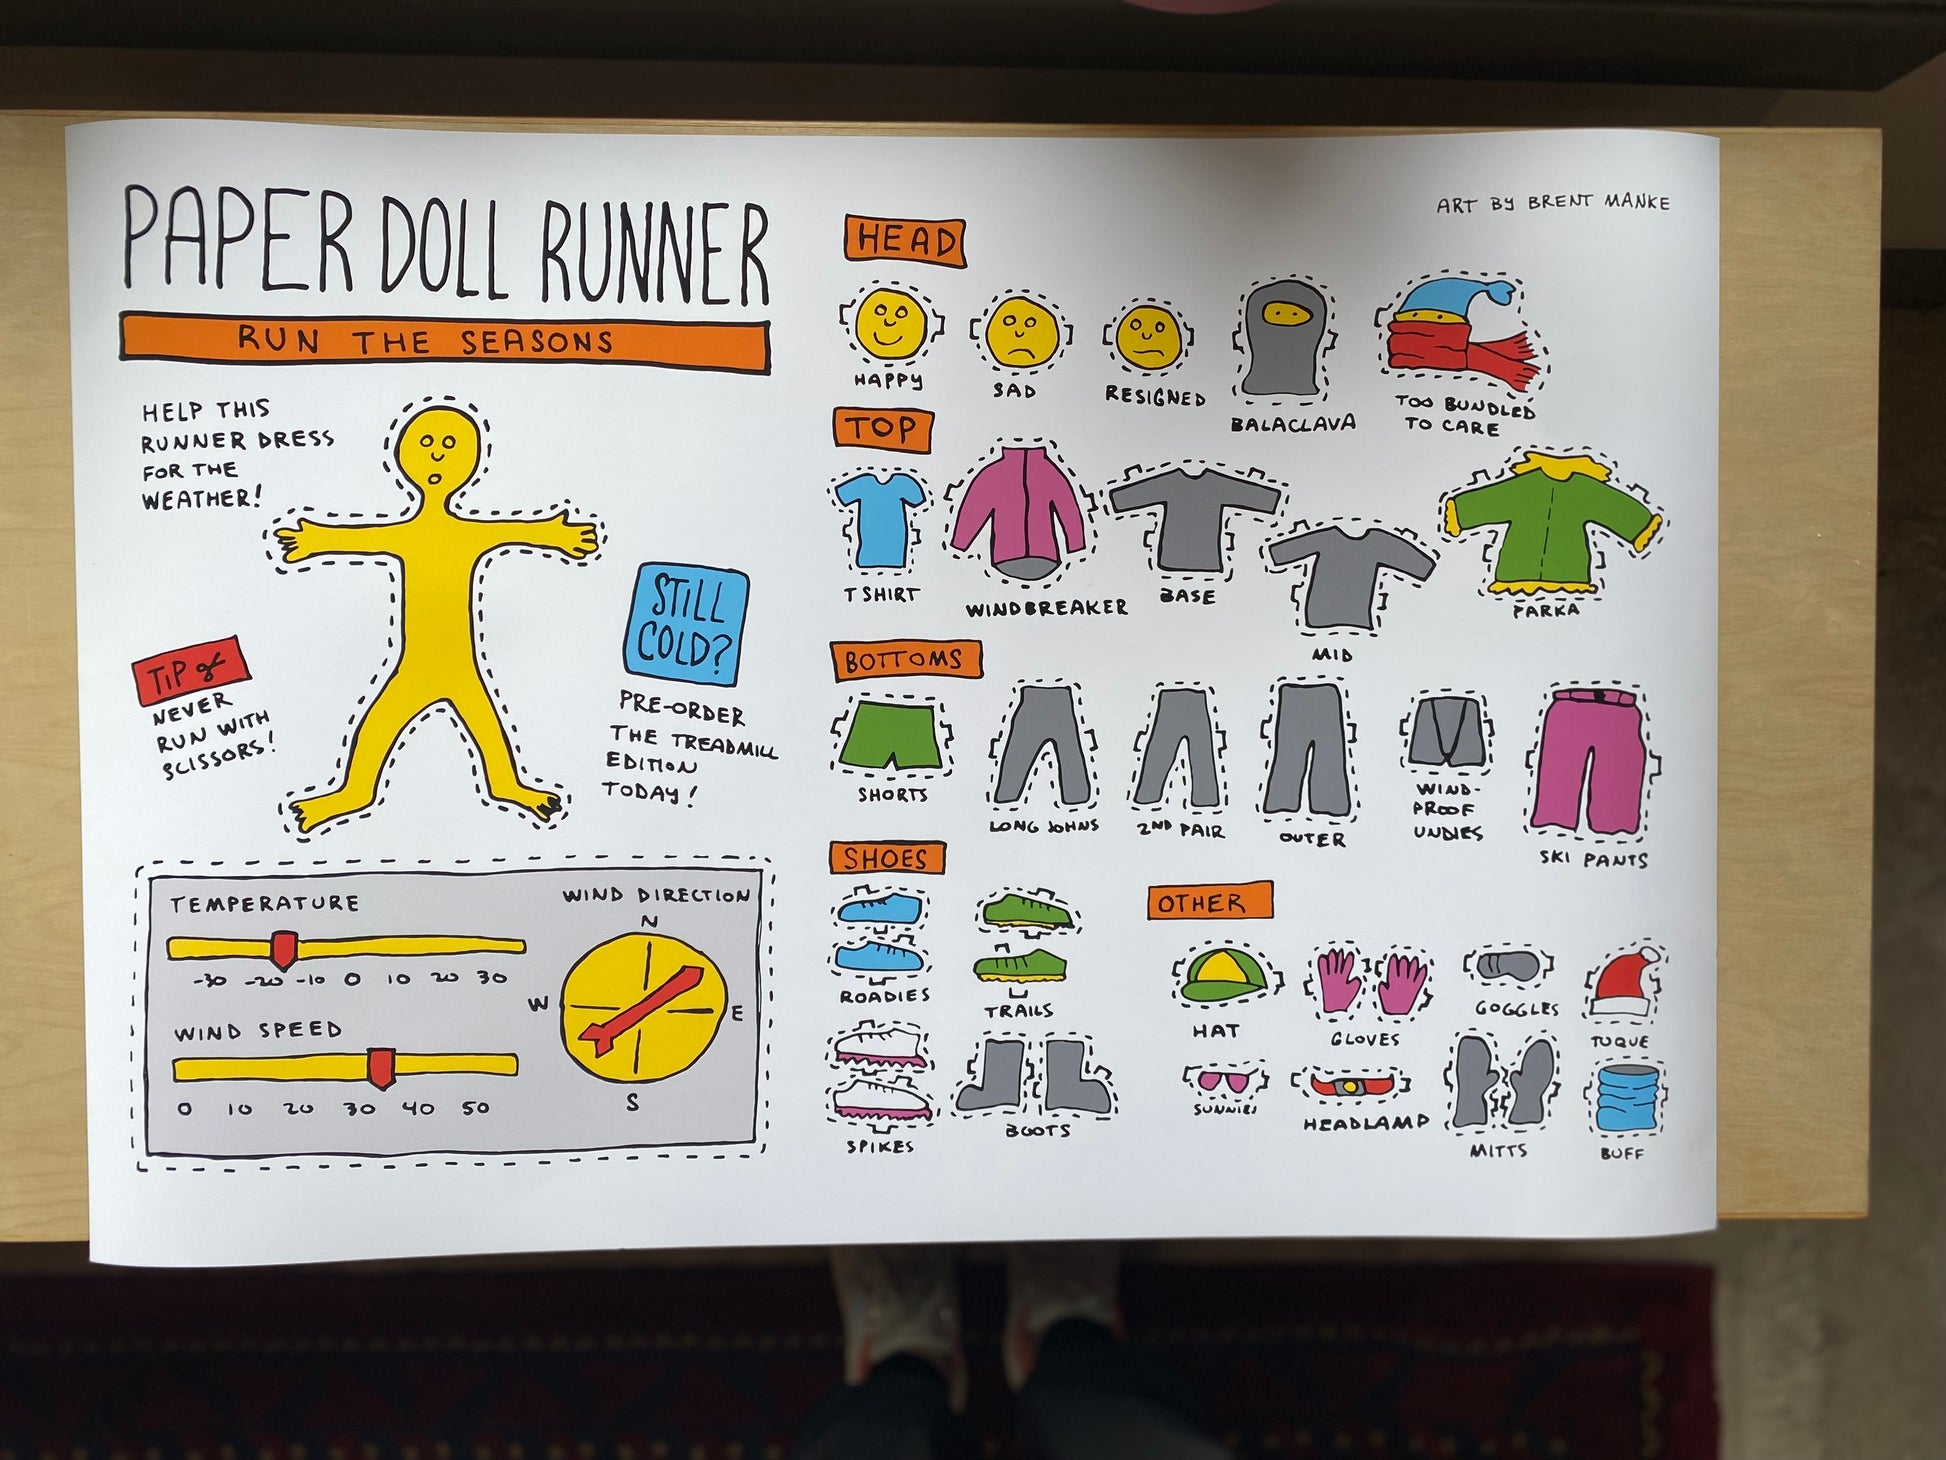 PAPER DOLL RUNNER
RUN THE SEASONS
HELP THIS
RUNNER DRESS
FOR THE
WEATHER!
TIP
NEVER
RUN WITH
SCISSORS!
STILL
COLD?
PRE-ORDER
THE TREADMILL
EDITION
TODAY!
TEMPERATURE
-30 -20 -10 0 10 20 30
WIND SPEED
0 10 20 30 40 50
WIND DIRECTION
N
W
E
S
ART BY BRENT MANKE
HEAD
HAPPY
SAD
RESIGNED
BALACLAVA
TOO BUNDLED
TO CARE
TOP
T SHIRT
WINDBREAKER
BASE
MID
PARKA
BOTTOMS
SHORTS
LONG JOHNS
2ND PAIR
OUTER
WIND-
PROOF
UNDIES
SKI PANTS
SHOES
ROADIES
TRAILS
SPIKES
BOOTS
OTHER
HAT
GLOVES
GOGGLES
TUQUE
SUNNIES
HEADLAMP
MITTS
BUFF